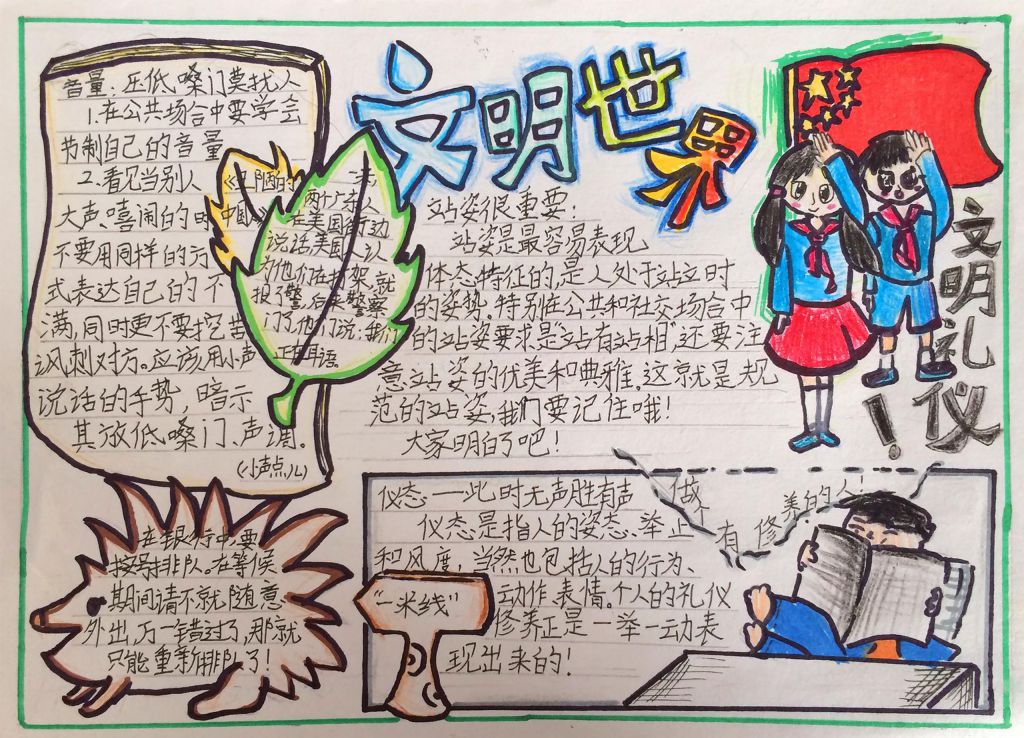 文明世界
文明礼仪!
音量:压低嗓门莫找人
1.在公共场合中要学会
节制自己的音量
2.看见当别人
大声喜闹的时
不要用同样的方
式表达自己的不
满,同时更不要挖苦
讽刺对方。应该用小声
说话的手势,暗示
其放低嗓门、声调。
(小声点儿)
《丑陋的
中国人》
两个广东人
在美国街边
说话美国人认
为他们在打架,就
报了警后来警察
问了他们说:我们
正在耳语
站姿很重要:
站姿是最容易表现
体态特征的,是人处于站立时
的姿势。特别在公共和社交场合中
的站姿要求是“站有站相”还要注
意站姿的优美和典雅。这就是规
范的站姿,我们要记住哦!
大家明白了吧!
在银行中要
按号排队。在等候
期间请不就随意
外出,万一错过了,那就
只能重新排队了!
“一米线”
仪态——此时无声胜有声
仪态是指人的姿态、举止
和风度,当然也包括人的行为、
动作、表情。个人的礼仪
修养正是一举一动表
现出来的!
做有修养的人!